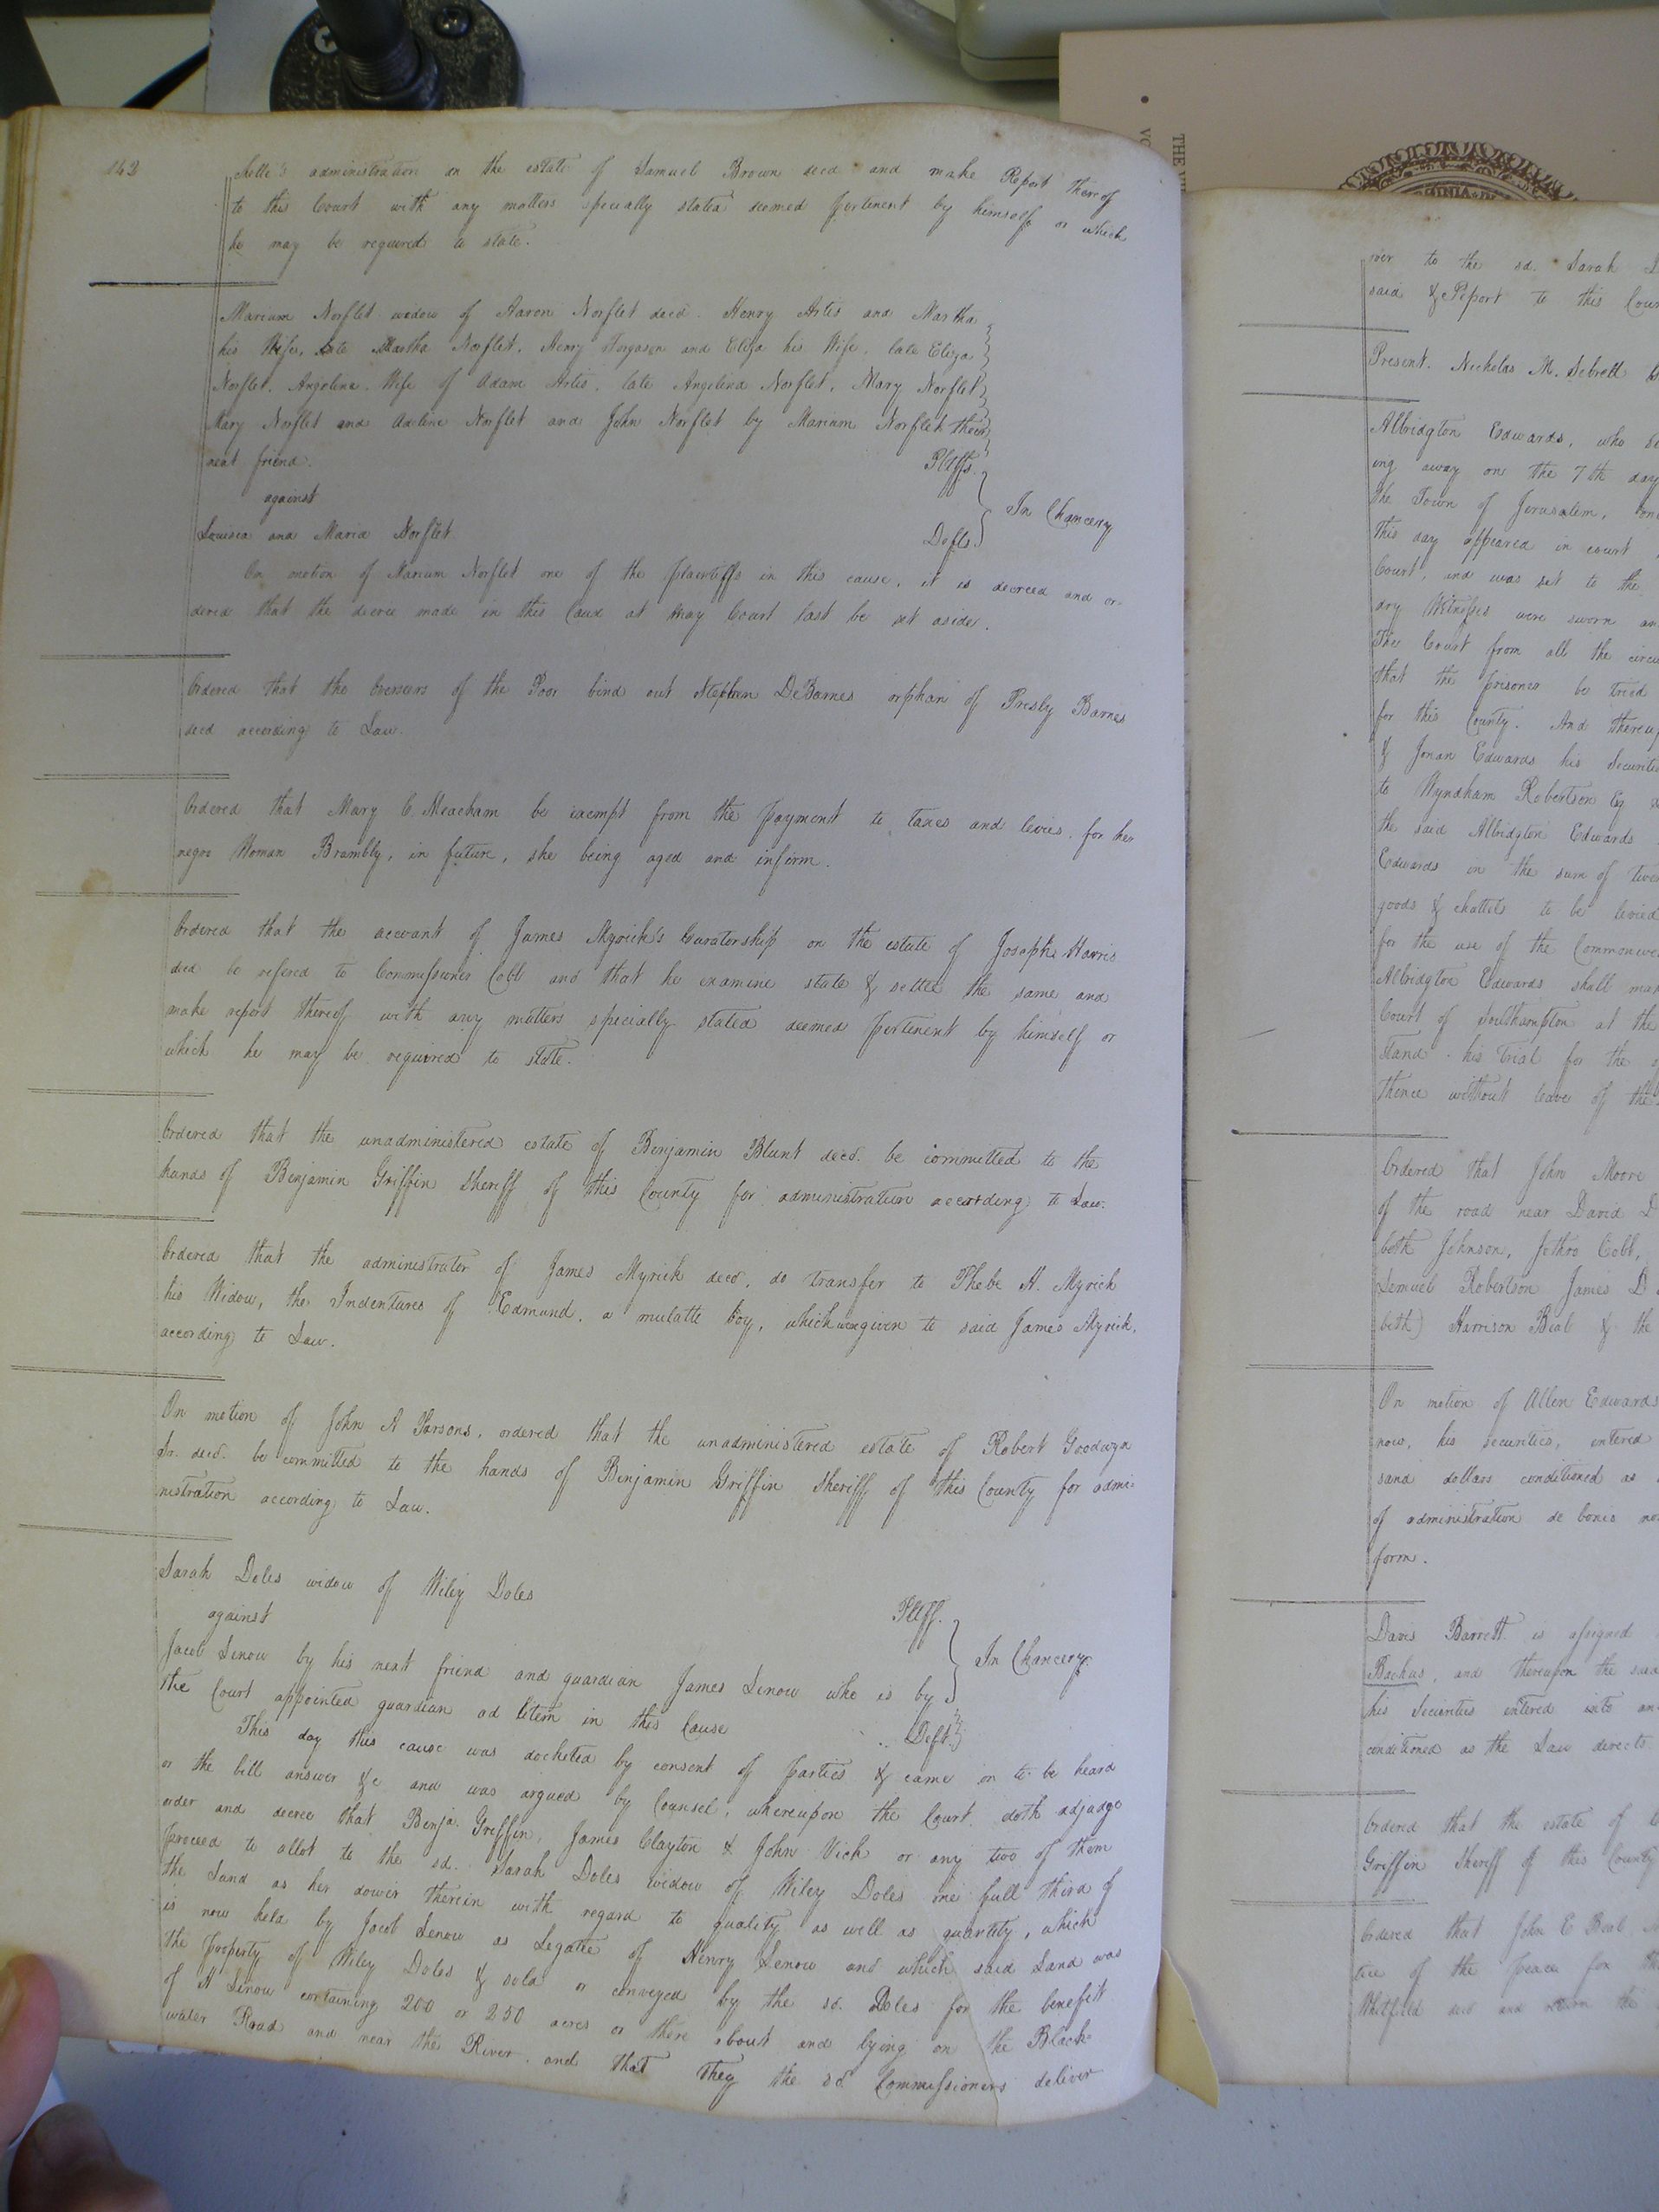 142
administration on the estate of Samuel Brown decd and make Report thereof
to this Court with any matters specially stated deemed pertinent by himself or which
he may be required to state.
Marium Norflet widow of Aaron Norflet decd. Henry Artis and Martha
his Wife, late Martha Norflet, Henry Ferguson and Eliza his Wife, late Eliza
Norflet, Angelina Wife of Adam Artis, late Angelina Norflet, Mary Norflet
Mary Norflet and Axeline Norflet and John Norflet by Marium Norflet their
next friend. Pltffs.
against
In Chancery
Louisea and Maria Norflet Defts.
On motion of Marium Norflet one of the plaintiffs in this cause, it is decreed and or-
dered that the decree made in this Caud at may Court last be set aside.
Ordered that the Overseers of the Poor bind out Stephen DeBarnes orphan of Presly Barnes
decd according to Law.
Ordered that Mary C. Meacham be exempt from the payment to taxes and levies, for her
negro Woman Brambly, in future, she being aged and infirm.
Ordered that the account of James Myrick's Curatorship on the estate of Joseph Harris
decd be refered to Commissioner Cobb and that he examine state & settle the same and
make report thereof with any matters specially stated deemed pertinent by himself or
which he may be required to state.
Ordered that the unadministered estate of Benjamin Blunt decd. be committed to the
hands of Benjamin Griffin Sheriff of this County for administration according to Law.
Ordered that the administrator of James Myrick decd, do transfer to Phebe A. Myrick
his Widow, the Indentures of Edmund, a mulatto boy, which were given to said James Myrick,
according to Law.
On motion of John A Parsons, ordered that the unadministered estate of Robert Goodwyn
Sr. decd. be committed to the hands of Benjamin Griffin Sheriff of this County for admi-
nistration according to Law.
Sarah Doles widow of Wiley Doles Pltff.
against
In Chancery
Jacob Lenow by his next friend and guardian James Lenow who is by
the Court appointed guardian ad litem in this Cause Deft.
This day this cause was docketed by consent of parties & came on to be heard
on the bill answer &c and was argued by Counsel, whereupon the Court doth adjudge
order and decree that Benja. Griffin, James Clayton & John Vick or any two of them
proceed to allot to the sd. Sarah Doles widow of Wiley Doles one full third of
the Land as her dower therein with regard to quality as well as quantity, which
is now held by Jacob Lenow as Legatee of Henry Lenow and which said Land was
the property of Wiley Doles & sold or conveyed by the sd. Doles for the benefit
of H Lenow containing 200 or 250 acres or there about and lying on the Black-
water Road and near the River and that they the sd Commissioners deliver
THE VI
VO
GINIA
over to the sd. Sarah D
said & Report to this Cour
Present. Nicholas M. Sebrell
Albridgton Edwards, who
ing away on the 7th day
the Town of Jerusalem, one
This day appeared in court
Court, and was set to the
dry Witnesses were sworn an
The Court from all the circu
that the prisoner be tried
for this County. And thereu
& Jonan Edwards his Securite
to Wyndham Robertson Eq
the said Albridgton Edwards
Edwards in the sum of twe
goods & chattels to be levied
for the use of the Commonwe
Albridgton Edwards shall mak
Court of Southampton at the
stand his trial for the o
thence without leave of the
Ordered that John Moore
of the road near David D
both Johnson, Jethro Cobb,
Lemuel Robertson James D
beth) Harrison Beal & the
On motion of Allen Edwards
now, his securities, entered
sand dollars conditioned as
of administration de bonis no
form.
Davis Barrett is assigned
Backus, and thereupon the said
his Securities entered into an
conditioned as the Law directs
Ordered that the estate of
Griffin Sheriff of this County
Ordered that John E Beal
tice of the peace for th
Whitfield decd and return the